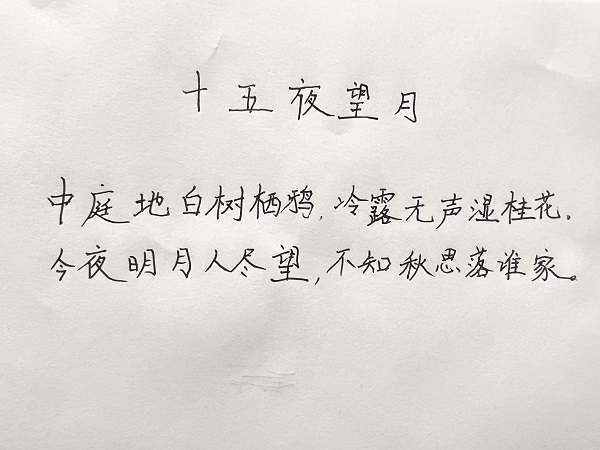 十五夜望月
中庭地白树栖鸦,冷露无声湿桂花.
今夜明月人尽望,不知秋思落谁家。